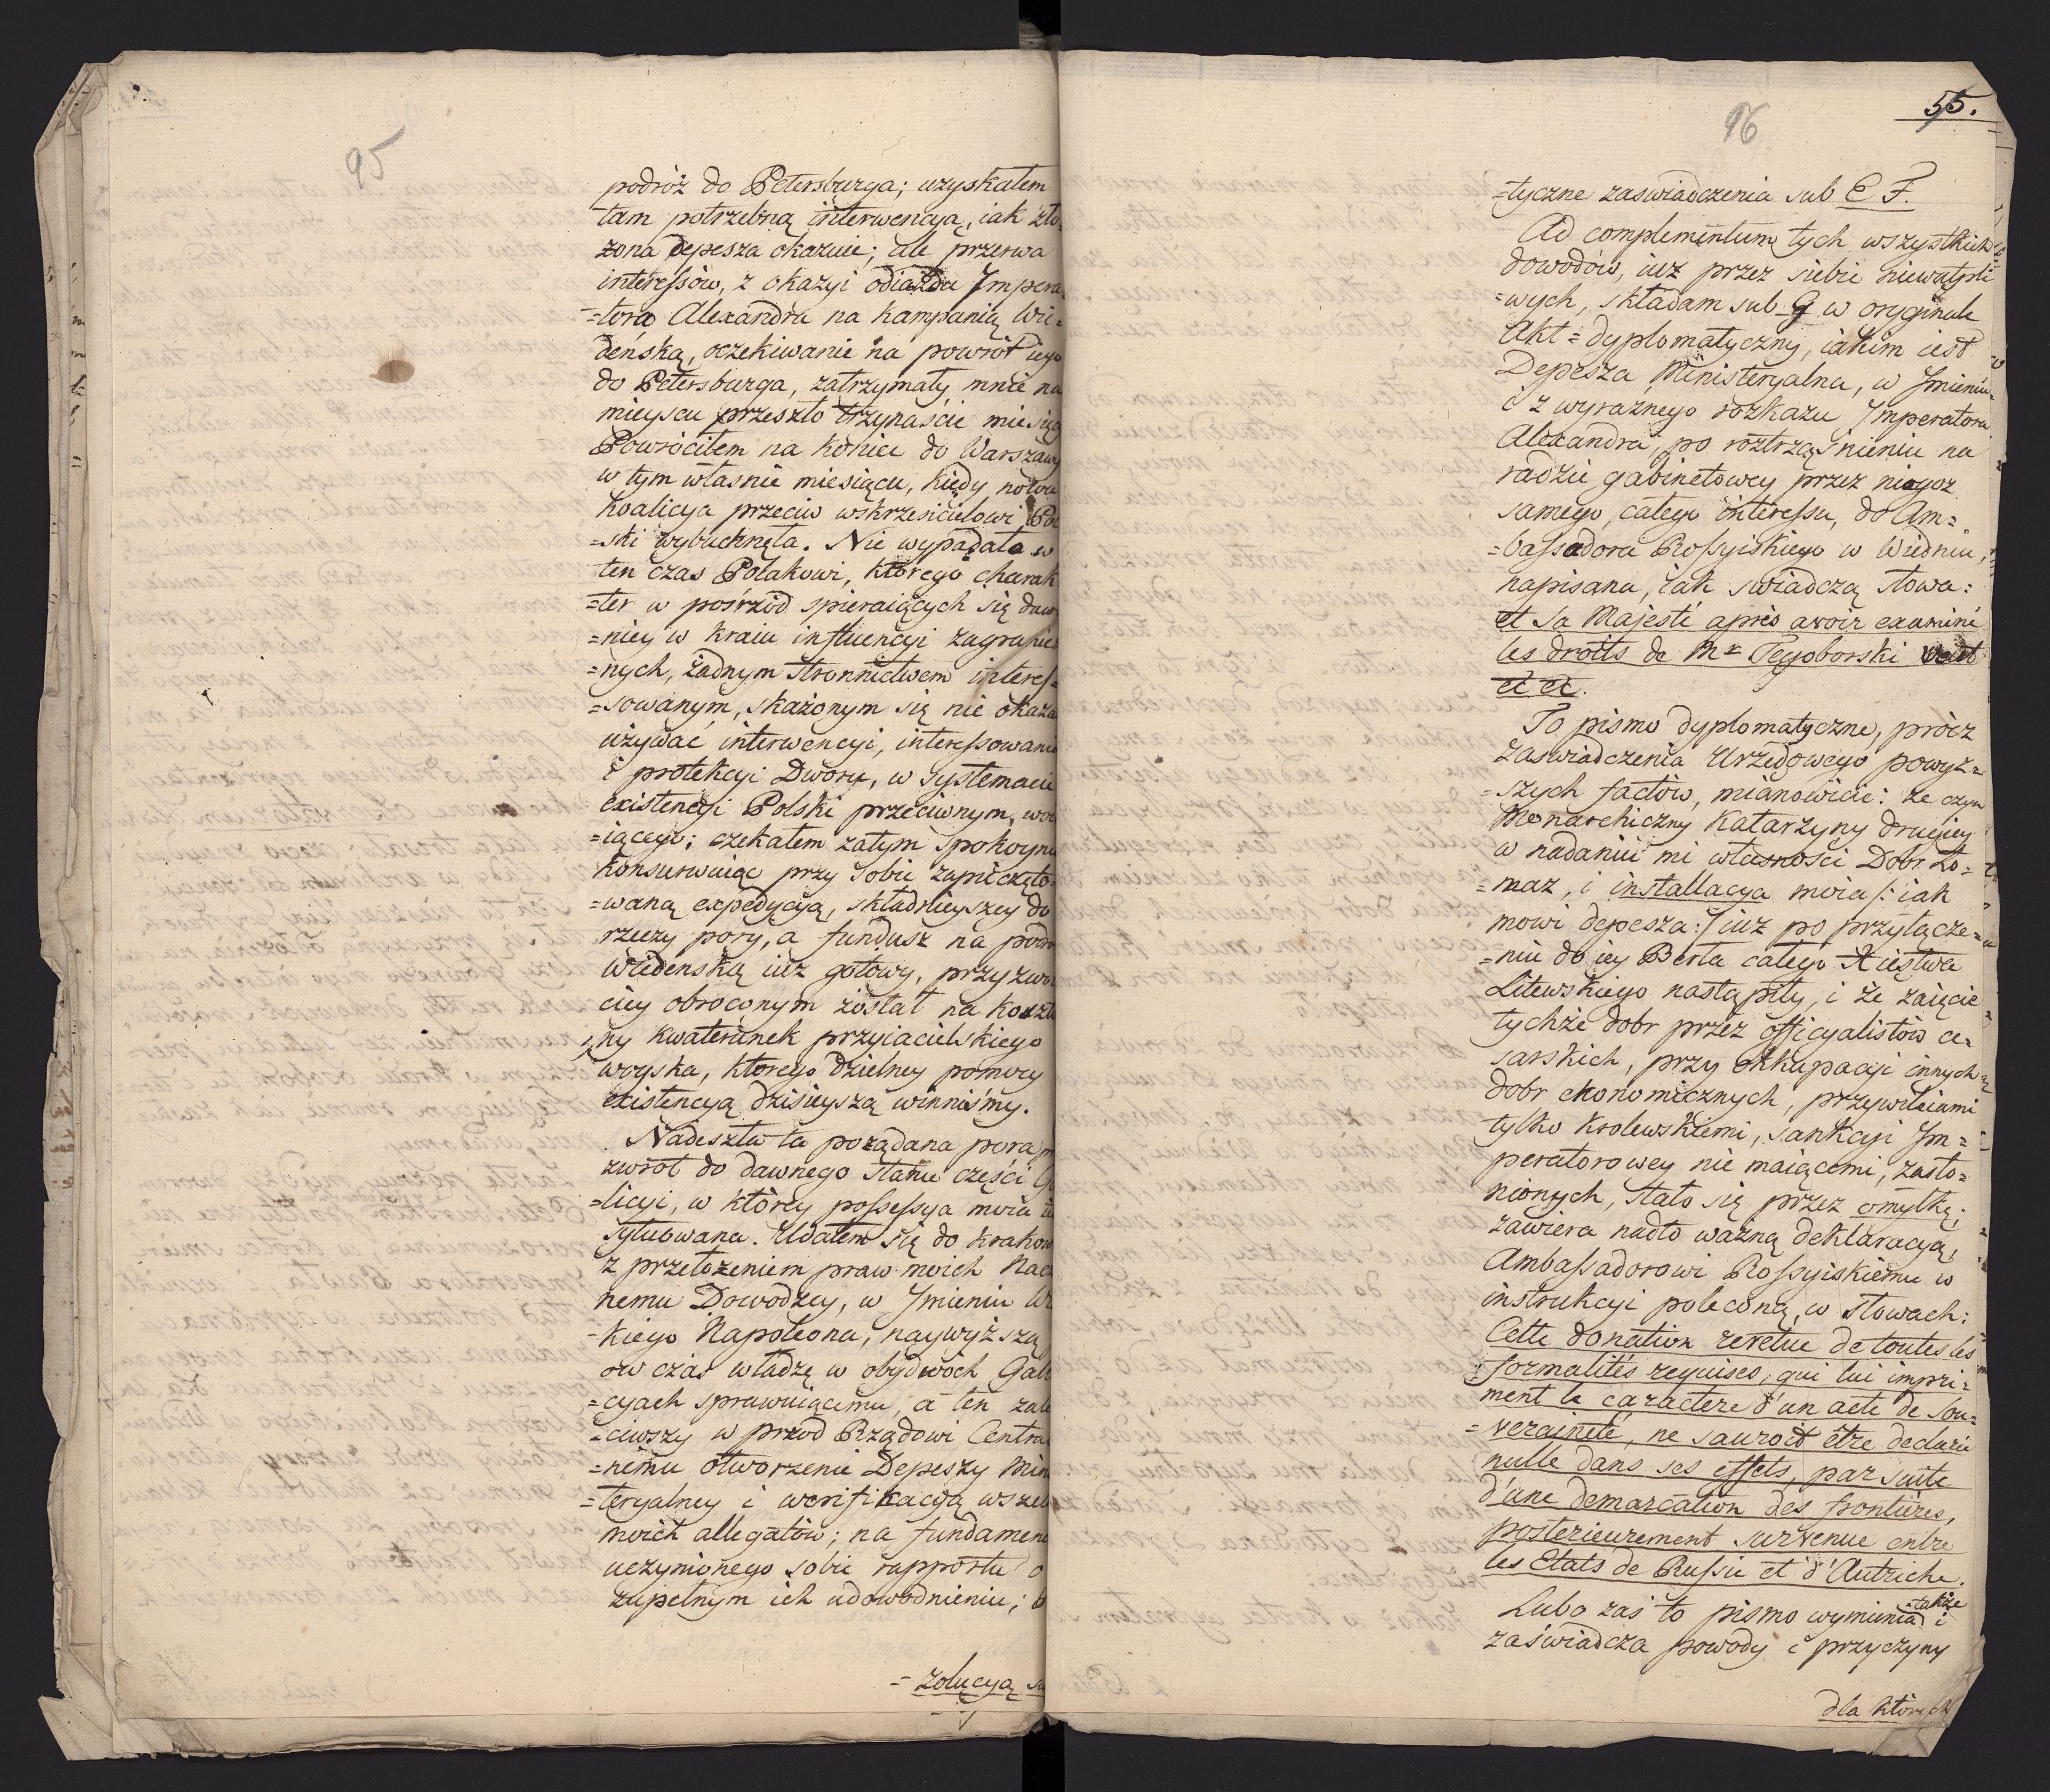 95
podróż do Petersburga; uzyskałem
tam potrzebną interwencyą, iak zło-
żona depesza okazuie; ale przerwa
interessów, z okazyi odiazdu Impera
=tora Alexandra na kampanią Wie=
deńską, oczekiwanie na powrót iego
do Petersburga, zatrzymały mnie na
mieyscu przeszło trzynaście miesięc
Powróciłem na koniec do Warszawy
w tym właśnie miesiącu, kiedy nowa
koalicya przeciw wskrzesicielowi Pol
=ski wybuchnęła. Nie wypadało w
ten czas Polakowi, którego charak
=ter w pośrzód spieraiących się daw
=niey w kraiu influencyi zagranic
=nych, żadnym stronnictwem interes=
=sowanym, skażonym się nie okaza
używać interwencyi, interessowania
i protekcyi Dworu, w systemacie
existencyi Polski przeciwnym, wo
=iącego; czekałem zatym spokoynie
konserwuiąc przy sobie zapieczęto=
=waną expedycyą, składnieyszey do
rzeczy pory, a fundusz na podro
Wiedeńską iuż gotowy, przyzwo
ciey obroconym został na koszto
=ny kwaterunek przyiacielskiego
woyska, którego dzielney pomocy
existencyą dzisieyszą winniśmy.
Nadeszła ta pożądana pora p
zwrót do dawnego stanu części Ga
=licyi, w którey possessya moia
sytuowana. Udałem się do Krakow
z przełożeniem praw moich Nacz
nemu Dowodzcy, w Imieniu W
=kiego Napoleona, naywyższą
ow czas władzę w obydwóch Gali
=cyach sprawuiącemu, a ten zale
=ciwszy w przód Rządowi Centra
=nemu otworzenie Depeszy Mini
=teryalney i weryfikacyą wszel
moich allegatów; na fundamen
uczynionego sobie rapportu o
zupełnym ich udowodnieniu;
=zolucyą
96
55.
=tyczne zaświadczenia sub E F.
Ad complementum tych wszystkich
dowodów, iuż przez siebie niewątpli
=wych, składam sub G w oryginale
Akt=dyplomatyczny, iakim iest
Depesza Ministeryalna, w Imieniu
i z wyraznego rozkazu Imperatora
Alexandra, po roztrząśnieniu na
radzie gabinetowey przez niegoż
samego, całego interessu, do Am=
=bassadora Rossyiskiego w Wiedniu,
napisana, iak swiadczą słowa:
et Sa Majesté aprés avoir examiné
les droits de Mr Tegoborski veut
et et.
To pismo dyplomatyczne, prócz
Zaświadczenia Urzędowego powyż=
=szych factów, mianowicie: że czyn
Monarchiczny Katarzyny drugiey
w nadaniu mi własności Dobr Ło=
=maz, i installacya moia /: iak
mowi depesza :/ iuż po przyłącze=
=niu do iey Berła całego Xięstwa
Litewskiego nastąpiły, i że zaięcie
tychże dobr przez officyalistów ce=
sarskich, przy okkupacyi innych
dobr ekonomicznych, przywileiami
tylko Krolewskiemi, sankcyi Im=
peratorowey nie maiącemi, zasło=
nionych, stało się przez omyłkę;
zawiera nadto ważną deklaracyą,
Ambassadorowi Rossyiskiemu w
instrukcyi poleconą, w słowach:
Cette donation revetue de toutes les
formalités requises, qui lui impri=
ment le caractere d'un acte de Sou=
=veraineté, ne sauroit être declarée
nulle dans ses effets, par suite
d'une demarcation des frontieres,
posterieurement survenue entre
les Etats de Russie et d'Autriche.
Lubo zaś to pismo wymienia także i
zaświadcza powody i przyczyny
dla których